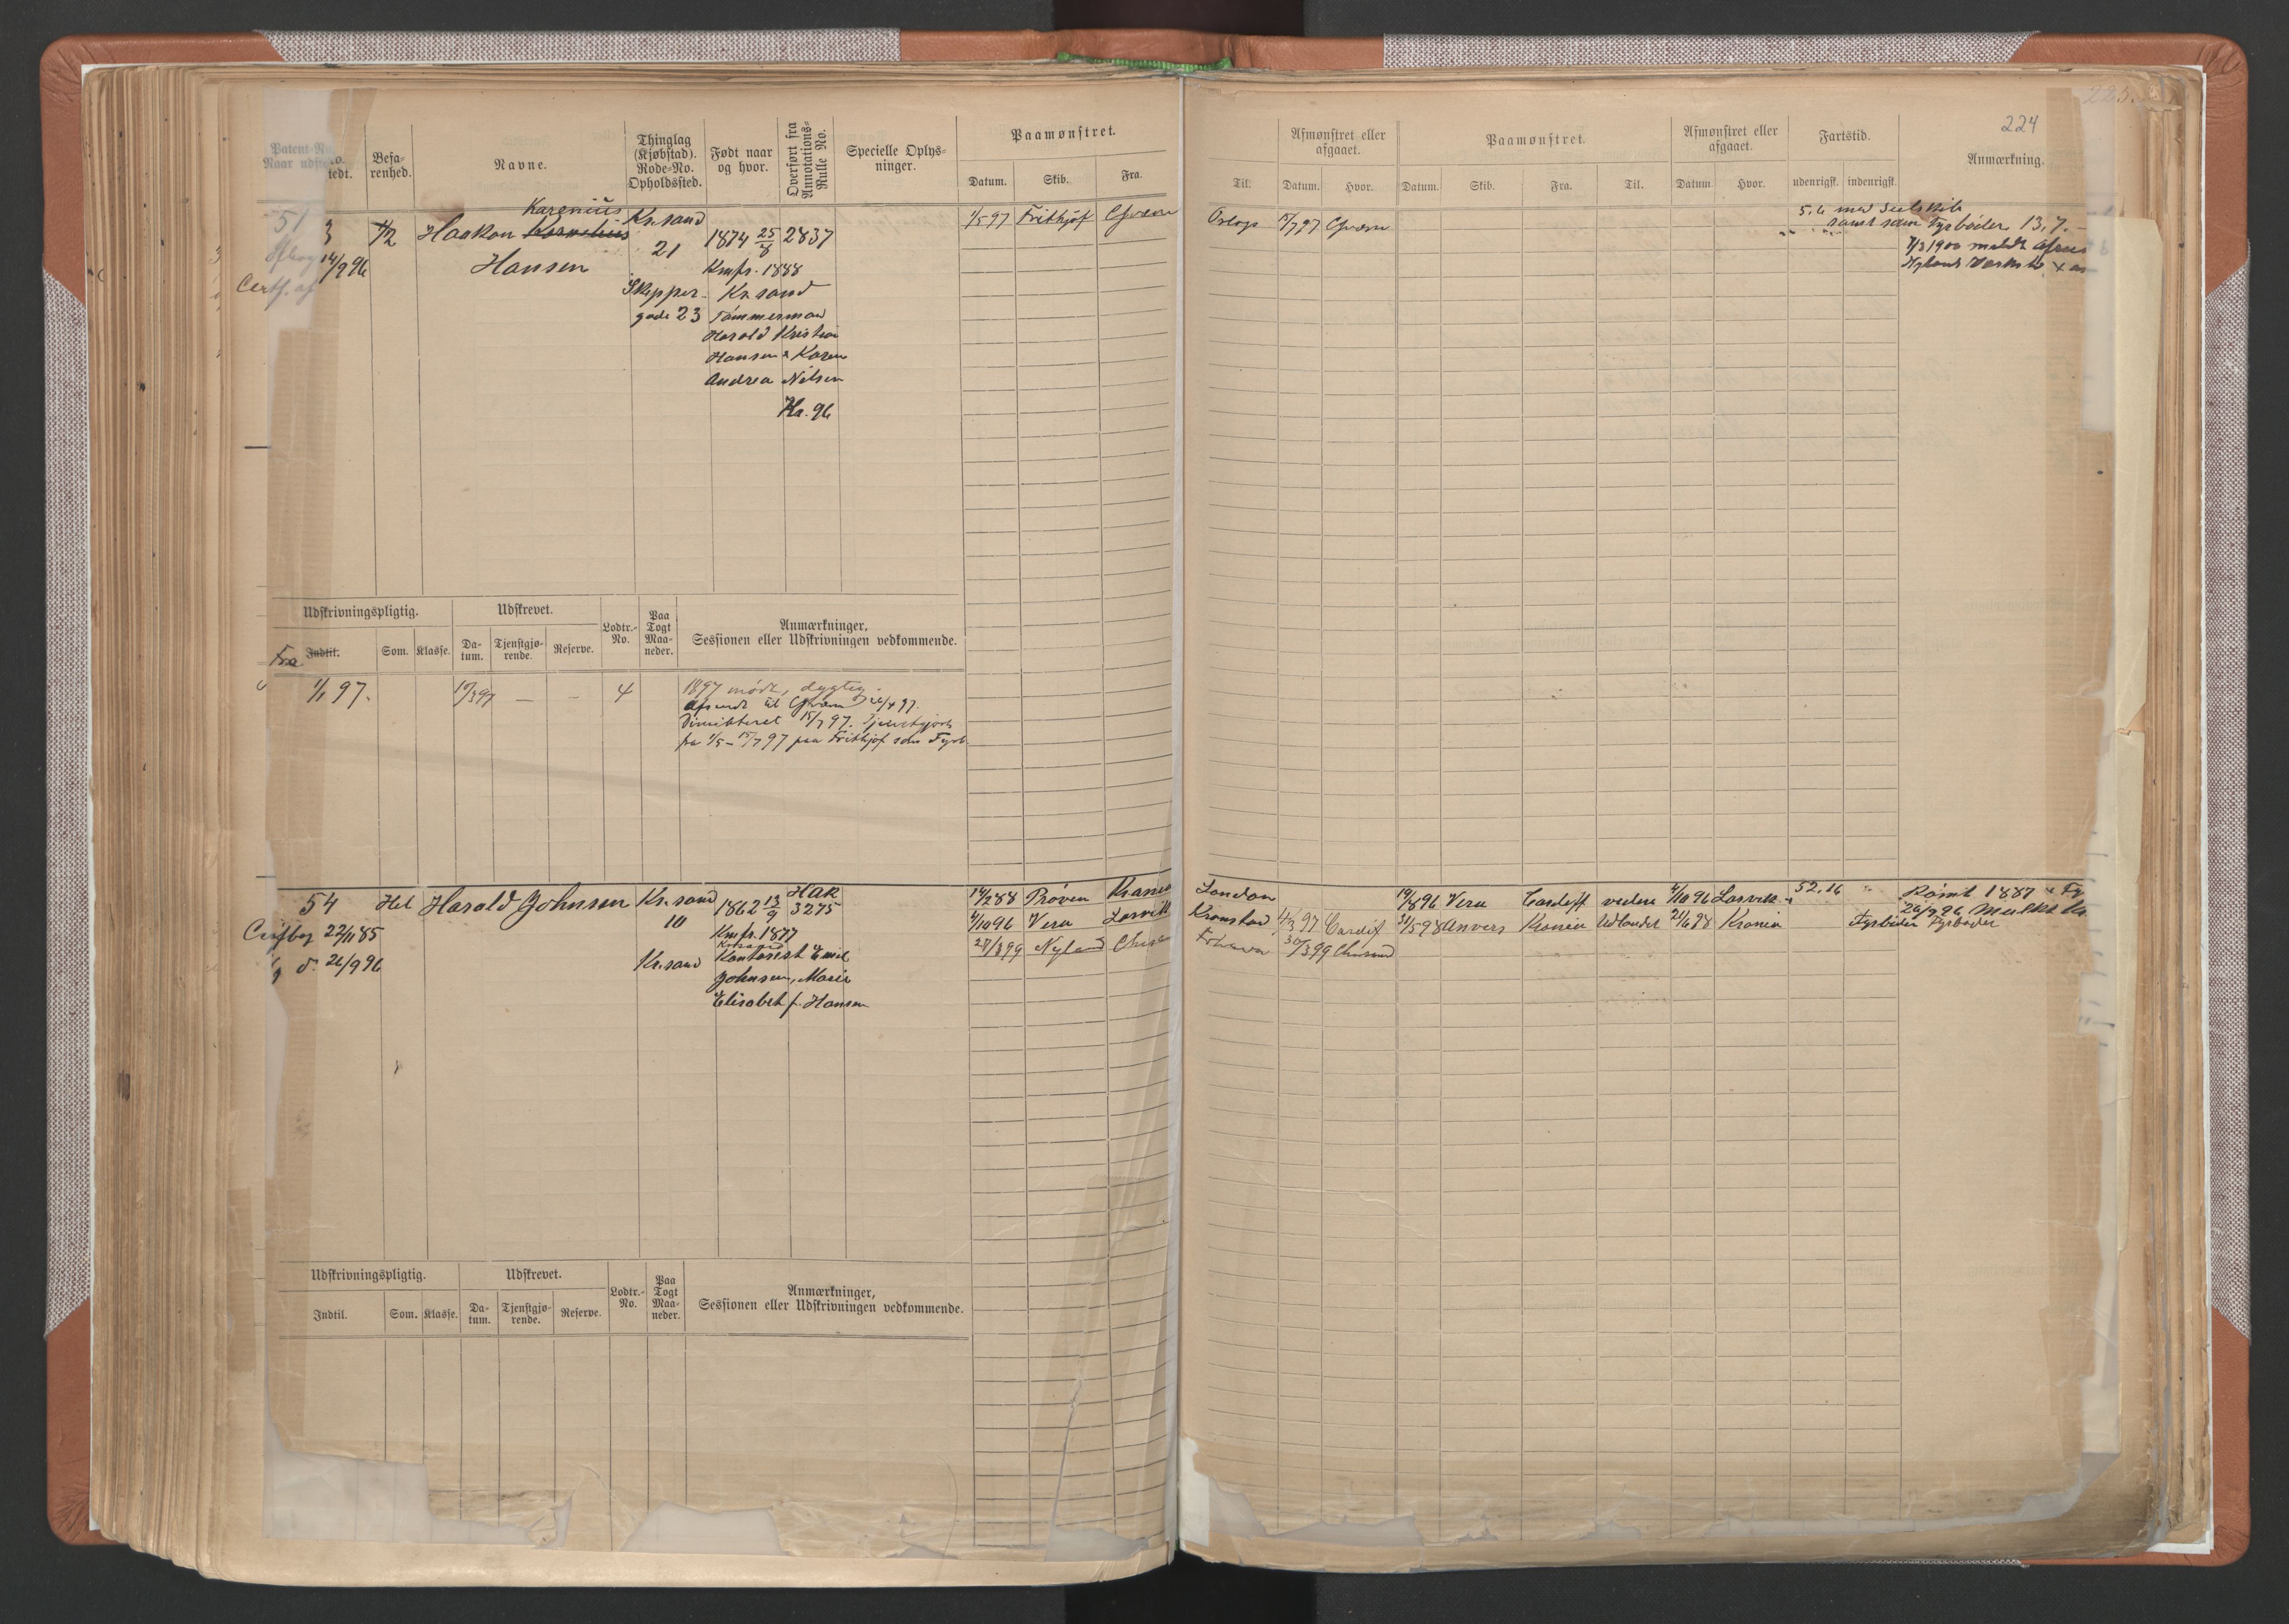 225.
224
Patent-No. Naar udstedt.
Befarenhed.
Navne.
Thinglag (Kjøbstad). Rode-No. Opholdssted.
Født naar og hvor.
Overført fra Annotations-Rulle No.
Specielle Oplysninger.
Paamønstret.
Datum. Skib. Fra.
Til.
Afmønstret eller afgaaet.
Datum. Hvor.
Paamønstret.
Datum. Skib. Fra. Til.
Afmønstret eller afgaaet.
Datum. Hvor.
Fartstid.
udenrigsk. indenrigsk.
Anmærkning.
51 3
14/9 96
1/2
Karenius
Haakon Kornelius
Hansen
Kr.sand
21
Skipper-
gade 23
1874 25/8 2837
Kmfr. 1888
Kr.sand
Tømmermand
Harald Kristian
Hansen & Karen
Andrea Nilsen
Kr. 96
1/5 97 Frithjof
15/7 97
5.6 med Seilskib
samt som Fyrbøder 13,7.
7/3 1900 meldt
Nylands
Udskrivningspligtig.
Udskrevet.
Lodtr.-No.
Paa Togt Maaneder.
Anmærkninger, Sessionen eller Udskrivningen vedkommende.
Fra Indtil. Som. Klasse. Datum. Tjenstgjørende. Reserve.
1/1 97. — — 4
1897 mødt, dygtig.
Dimitteret 15/7 97. Tjenstgjort
fra 1/5 – 15/7 97 paa Frithjof som Fyrb.
54 Hel Harald Johnsen Kr.sand 1862 13/9 HAR 3275
22/11 85
d. 26/9 96
10
Kr.sand
Kmfr. 1877
Kr.sand
Kontorist Emil
Johnsen, Marie
Elisabet f. Hansen
14/2 88 Prøven Krania London
19/8 96 Vera Cardiff videre 4/10 96 Larvik 52.16
4/10 96 Vera Larvik Kronstad
4/3 97 Cardif 31/5 98 Anvers Krania Udlandet 21/6 98 Krania Fyrbøder Fyrbøder
27/3 99 Nyland
30/3 99
Rømt 1887
26/9 96 Mulkt
Udskrivningspligtig.
Udskrevet.
Lodtr.-No.
Paa Togt Maaneder.
Anmærkninger, Sessionen eller Udskrivningen vedkommende.
Indtil. Som. Klasse. Datum. Tjenstgjørende. Reserve.